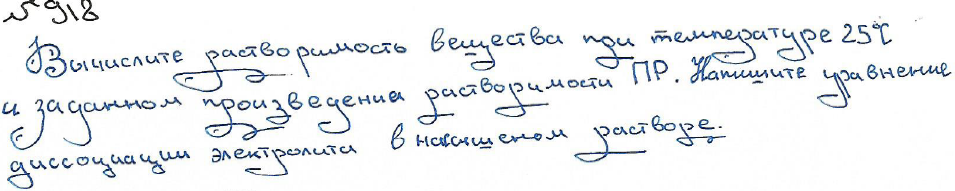 №918
Вычислите растворимость вещества при температуре 25℃
и заданном произведении растворимости ПР. Напишите уравнение
диссоциации электролита в насыщеном растворе.